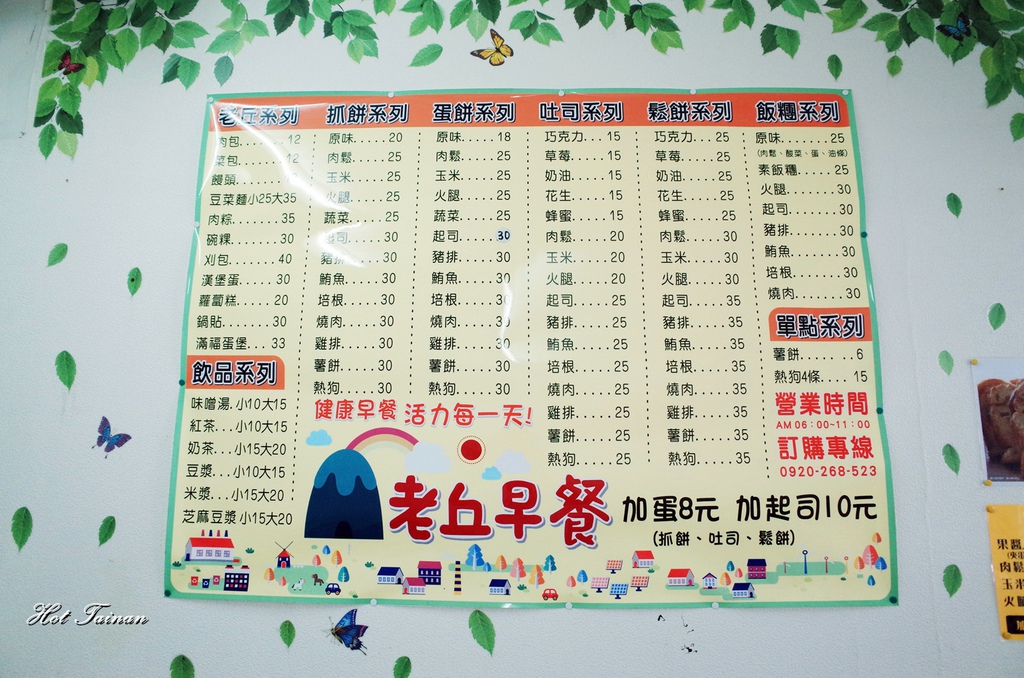 老丘系列
肉包......12
菜包......12
饅頭
豆菜麵小25大35
肉粽......35
碗粿......30
刈包......40
漢堡蛋......30
蘿蔔糕......20
鍋貼......30
滿福蛋堡...33
飲品系列
味噌湯.小10大15
紅茶...小10大15
奶茶...小15大20
豆漿...小10大15
米漿...小15大20
芝麻豆漿小15大20
抓餅系列
原味.....20
肉鬆.....25
玉米.....25
火腿.....25
蔬菜.....25
起司.....30
豬排.....30
鮪魚.....30
培根.....30
燒肉.....30
雞排.....30
薯餅.....30
熱狗.....30
蛋餅系列
原味.....18
肉鬆.....25
玉米.....25
火腿.....25
蔬菜.....25
起司.....30
豬排.....30
鮪魚.....30
培根.....30
燒肉.....30
雞排.....30
薯餅.....30
熱狗.....30
吐司系列
巧克力...15
草莓.....15
奶油.....15
花生.....15
蜂蜜.....15
肉鬆.....20
玉米.....20
火腿.....20
起司.....25
豬排.....25
鮪魚.....25
培根.....25
燒肉.....25
雞排.....25
薯餅.....25
熱狗.....25
鬆餅系列
巧克力...25
草莓.....25
奶油.....25
花生.....25
蜂蜜.....25
肉鬆.....30
玉米.....30
火腿.....30
起司.....35
豬排.....35
鮪魚.....35
培根.....35
燒肉.....35
雞排.....35
薯餅.....35
熱狗.....35
飯糰系列
原味.....25
(肉鬆、酸菜、蛋、油條)
素飯糰.....25
火腿.....30
起司.....30
豬排.....30
鮪魚.....30
培根.....30
燒肉.....30
單點系列
薯餅.......6
熱狗4條....15
營業時間
AM 06:00~11:00
訂購專線
0920-268-523
健康早餐 活力每一天!
老丘早餐
加蛋8元 加起司10元
(抓餅、吐司、鬆餅)
果醬
肉鬆
玉米
火腿
Hot Tainan